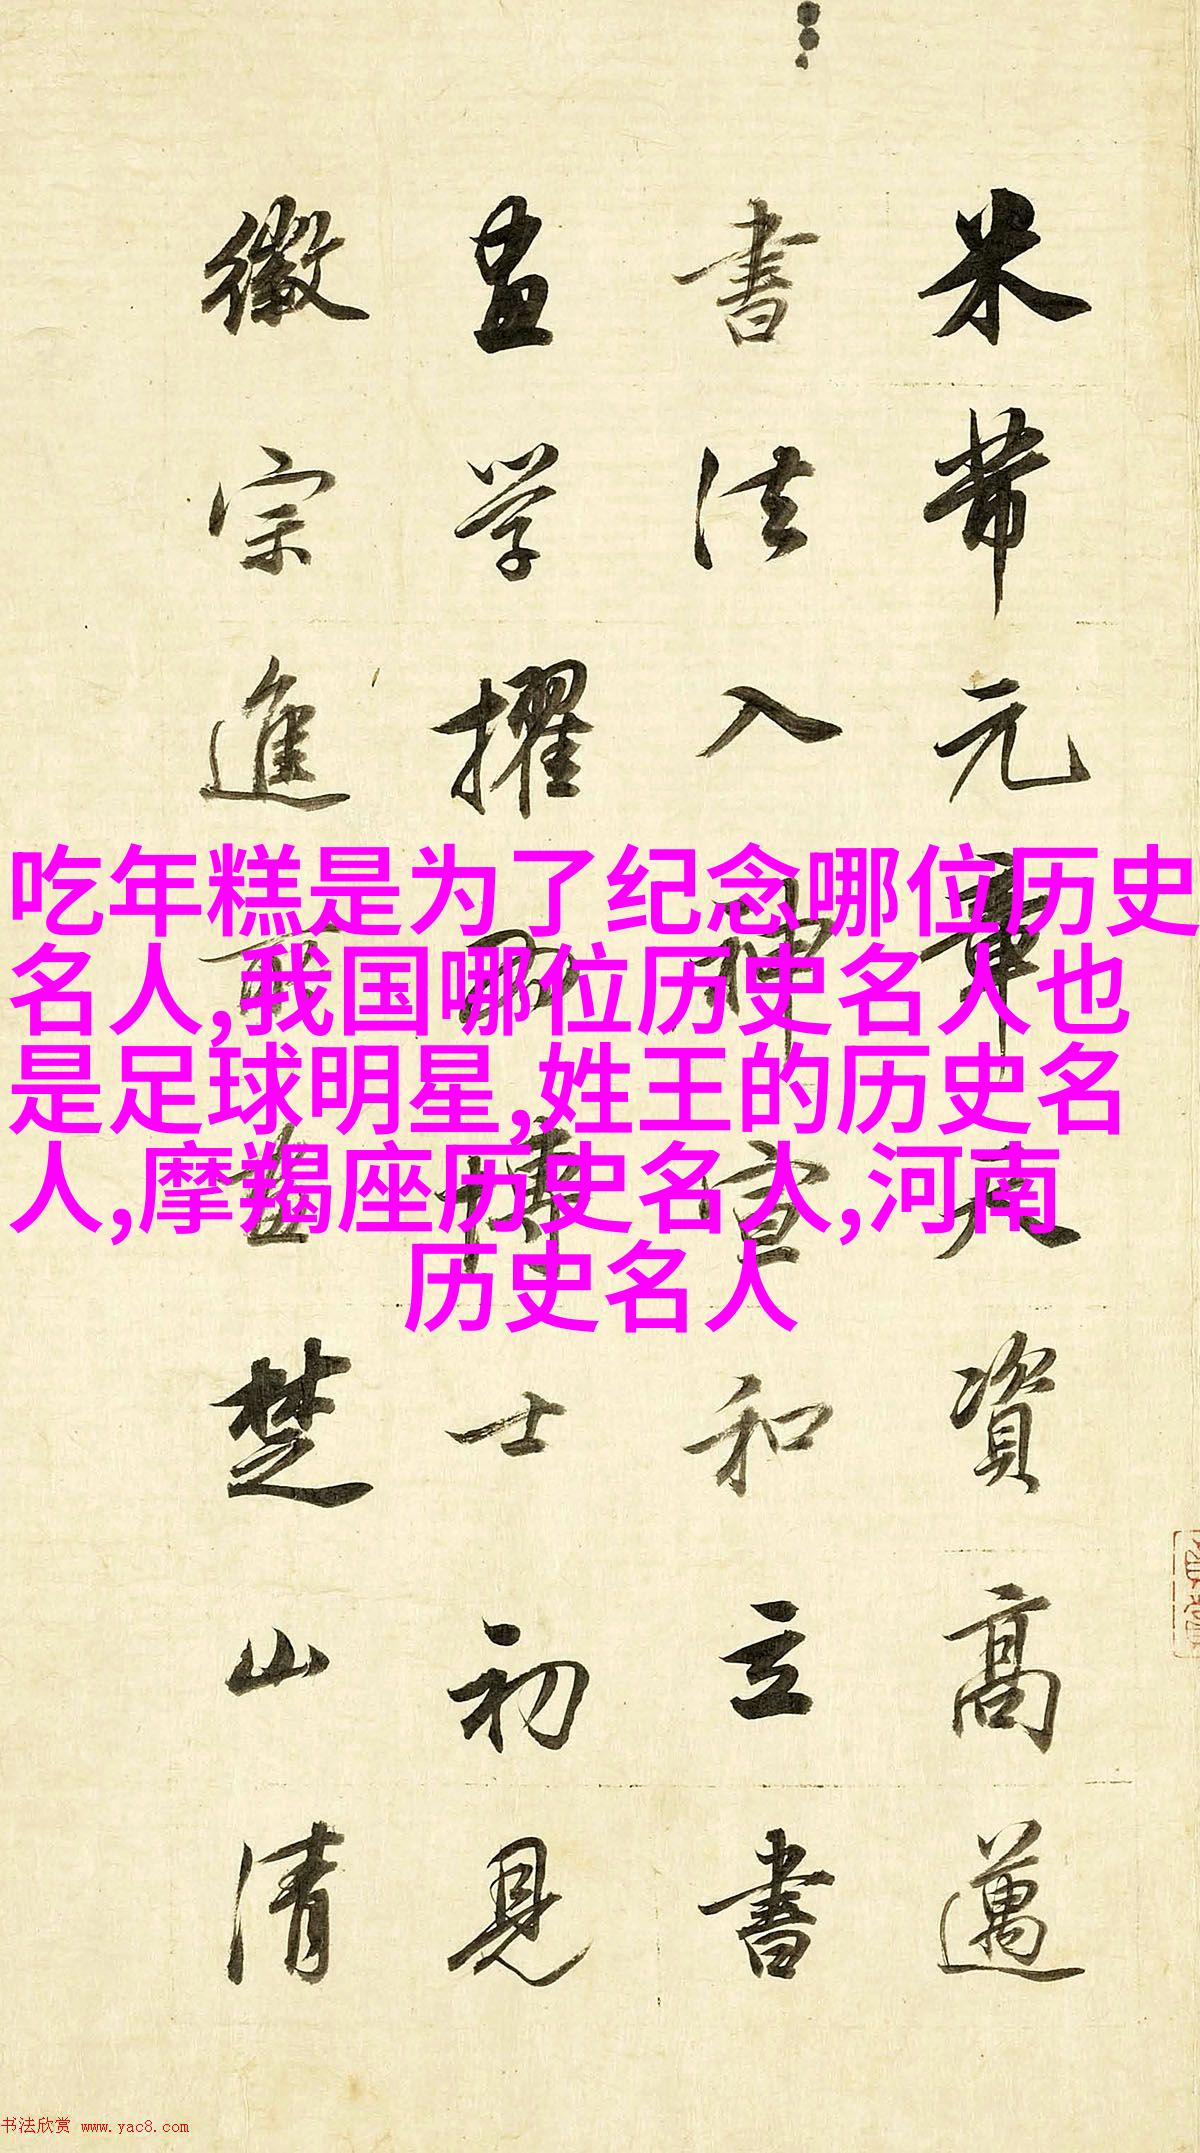 吃年糕是为了纪念哪位历史
名人,我国哪位历史名人也
是足球明星,姓王的历史名
人,摩羯座历史名人,河南
历史名人
米芾元章天資高邁
書法入神宣和立書
畫学擢為博士初見
徽宗進所畫楚山清
书法欣赏 www.yac8.com